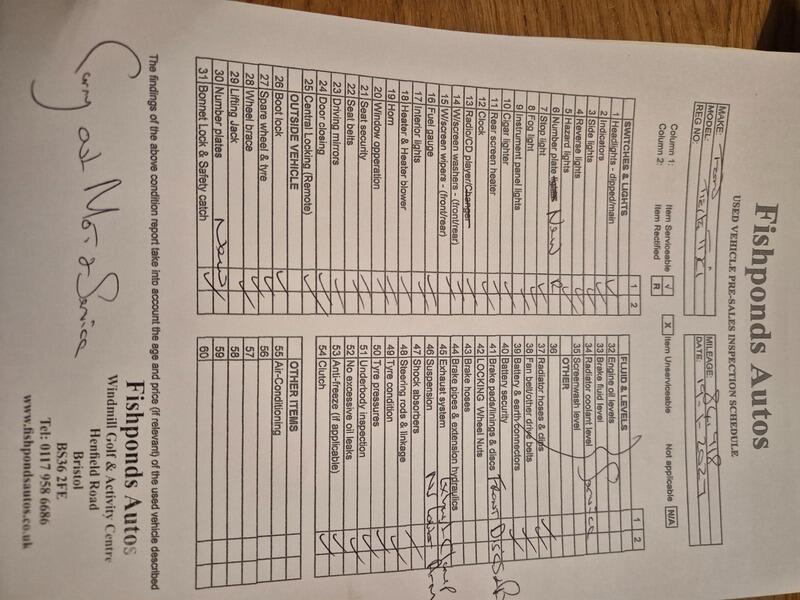 Fishponds Autos
USED VEHICLE PRE-SALES INSPECTION SCHEDULE
MAKE:
MODEL:
REG NO:
MILEAGE:
DATE:
Column 1: Item Serviceable √ X Item Unserviceable Not applicable N/A
Column 2: Item Rectified R
SWITCHES & LIGHTS 1 2
1 Headlights - dipped/main
2 Indicators
3 Side lights
4 Reverse lights
5 Hazard lights
6 Number plate lights New R
7 Stop light
8 Fog light
9 Instrument panel lights
10 Cigar lighter
11 Rear screen heater
12 Clock
13 Radio/CD player/Changer
14 W/screen washers - (front/rear)
15 W/screen wipers - (front/rear)
16 Fuel gauge
17 Interior lights
18 Heater & Heater blower
19 Horn
20 Window opperation
21 Seat security
22 Seat belts
23 Driving mirrors
24 Door closing
25 Central Locking (Remote)
OUTSIDE VEHICLE
26 Boot lock
27 Spare wheel & tyre
28 Wheel brace
29 Lifting Jack
30 Number plates New
31 Bonnet Lock & Safety catch
FLUID & LEVELS 1 2
32 Engine oil levels
33 Brake fluid level
34 Radiator coolant level Service
35 Screenwash level
OTHER
36
37 Radiator hoses & clips
38 Fan belt/other drive belts
39 Battery & earth connectors
40 Battery security
41 Brake pads/linings & discs Front Discs &
42 LOCKING Wheel Nuts
43 Brake hoses
44 Brake pipes & extension hydraulics
45 Exhaust system
46 Suspension
47 Shock absorbers
48 Steering rods & linkage
49 Tyre condition
50 Tyre pressures
51 Underbody inspection
52 No excessive oil leaks
53 Anti-freeze (if applicable)
54 Clutch
OTHER ITEMS
55 Air-Conditioning
56
57
58
59
60
The findings of the above condition report take into account the age and price (if relevant) of the used vehicle described
Carry out Mot & Service
Fishponds Autos
Windmill Golf & Activity Centre
Henfield Road
Bristol
BS36 2FE
Tel: 0117 958 6686
www.fishpondsautos.co.uk